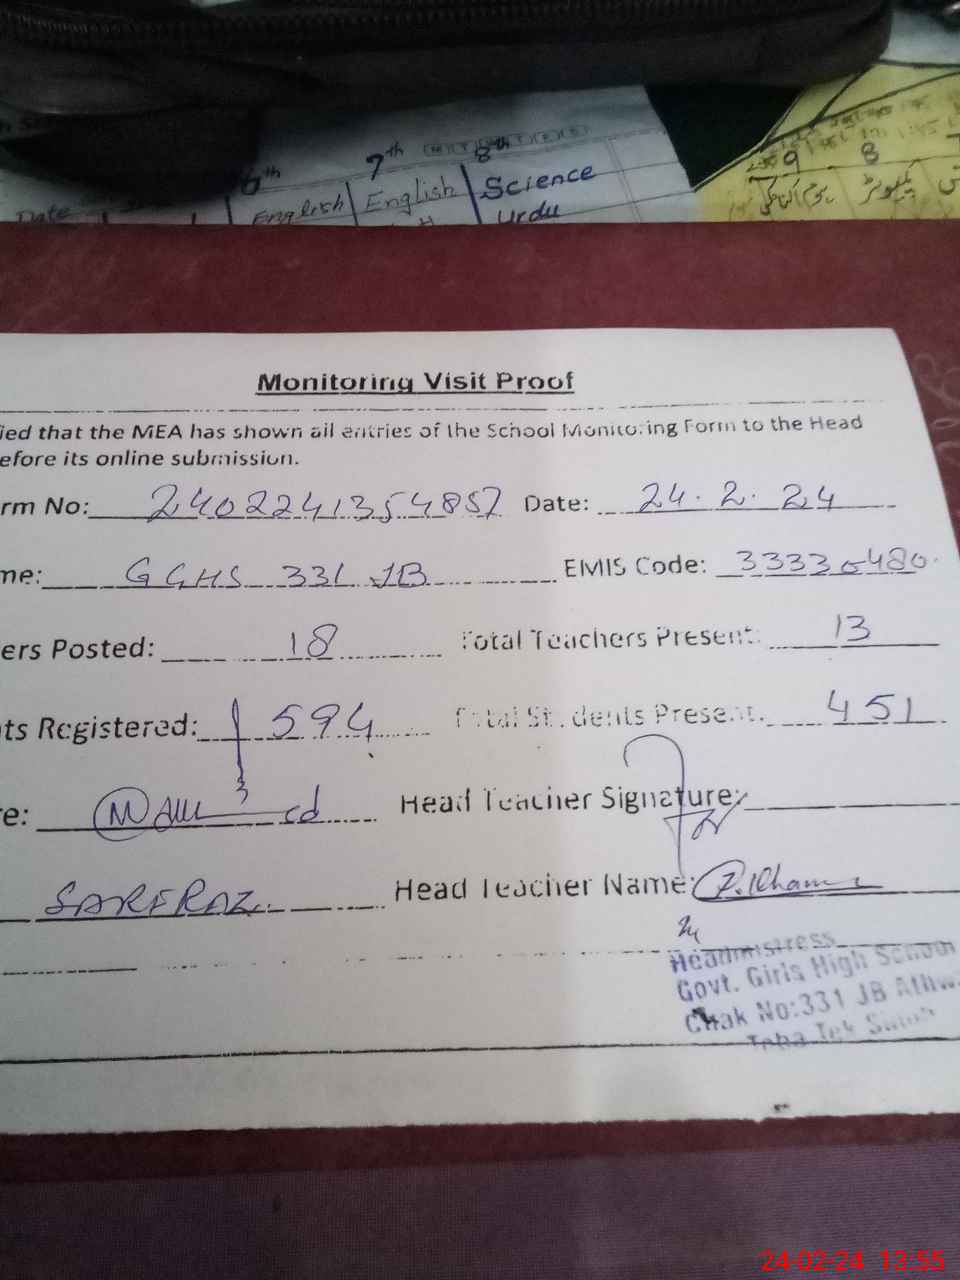 7th 8th
6th
Date English English Science
Urdu
9 8
Monitoring Visit Proof
ied that the MEA has shown all entries of the School Monitoring Form to the Head
efore its online submission.
rm No: 2402241354857 Date: 24.2.24
me: GGHS 331 JB EMIS Code: 33330480
ers Posted: 18 Total Teachers Present: 13
ts Registered: 594 Total Students Present: 451
e: Head Teacher Signature:
SARFRAZ Head Teacher Name:
Headmistress
Govt. Girls High School
Chak No:331 JB
Toba Tek Singh
24-02-24 13:55